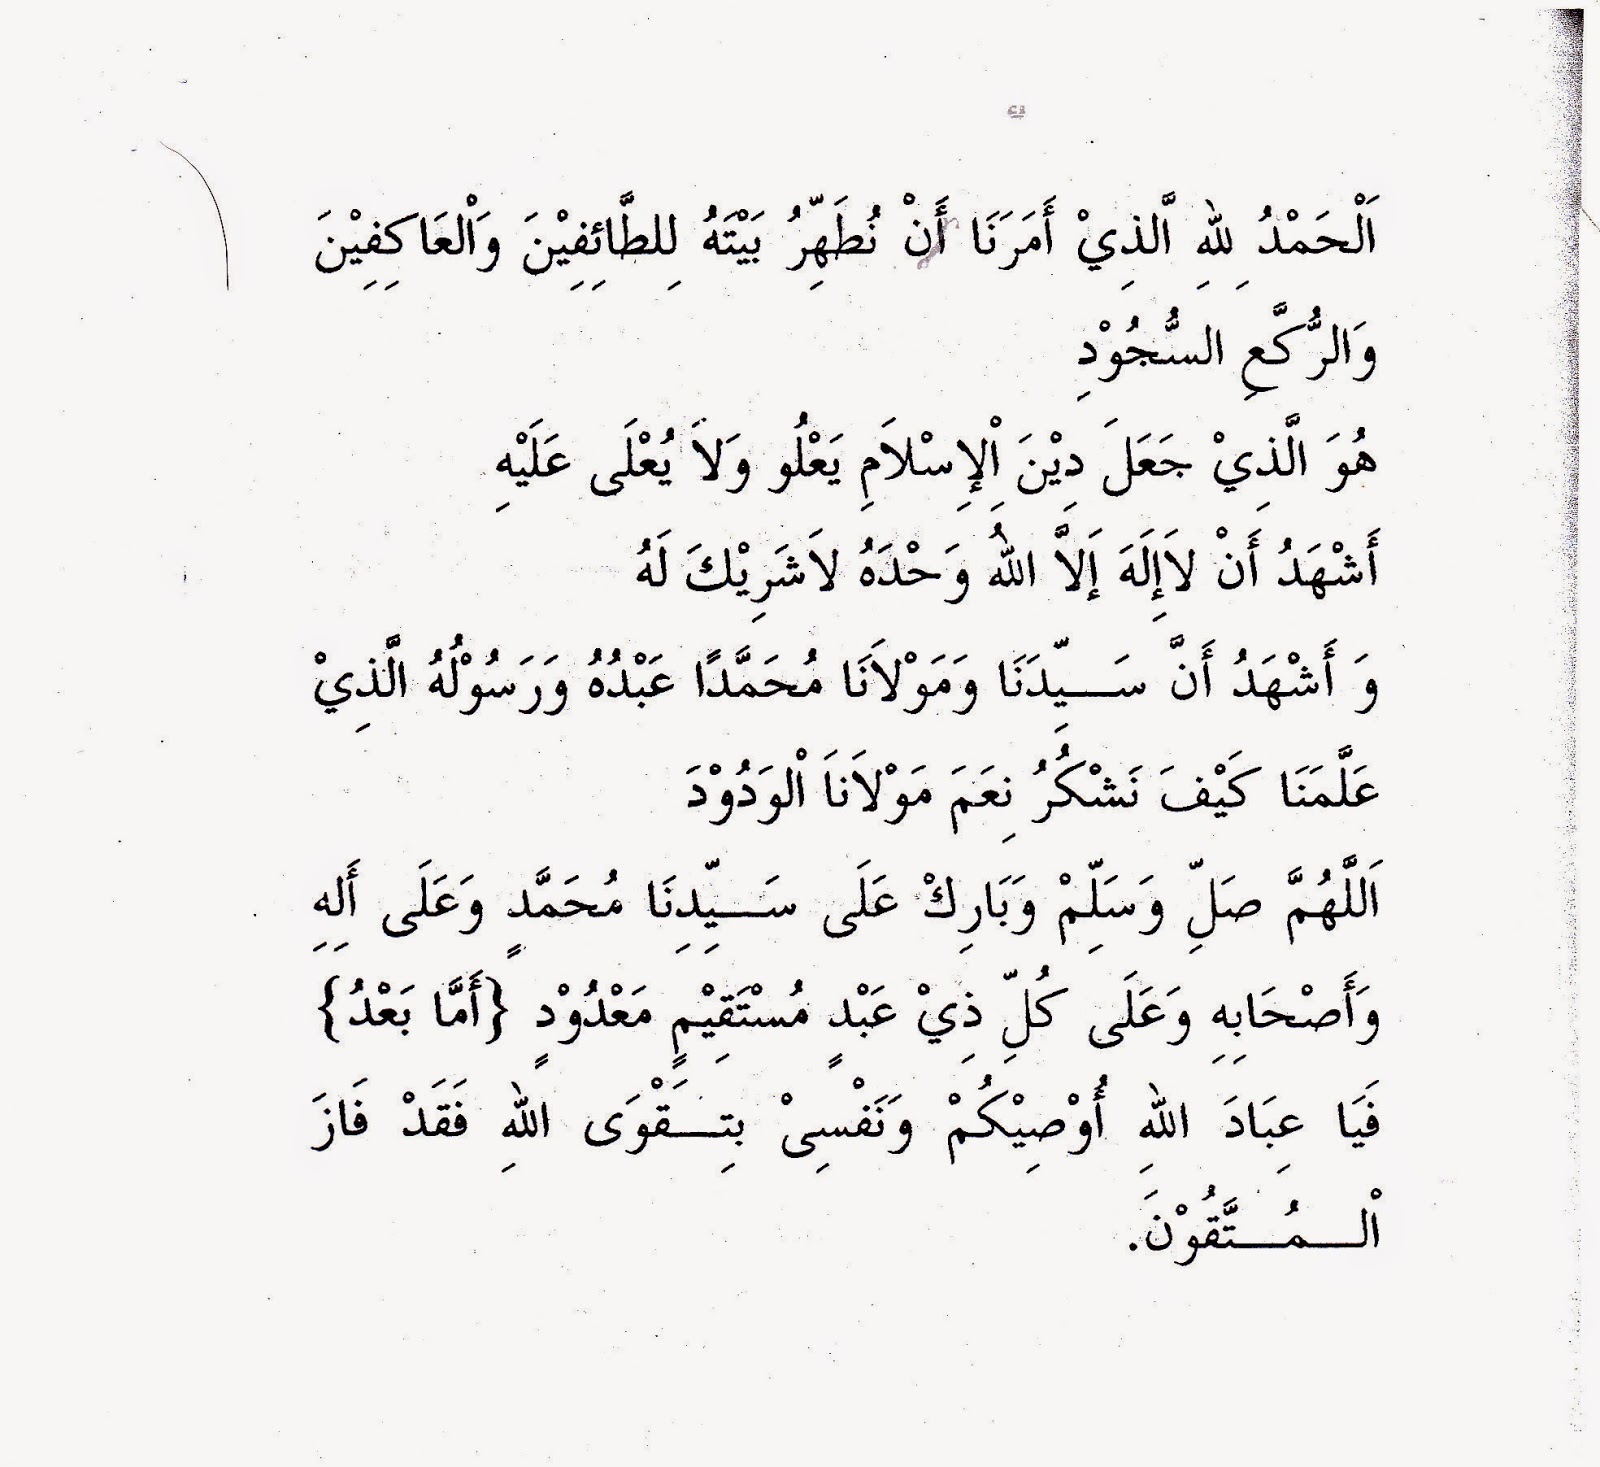 اَلْحَمْدُ لِلهِ الَّذِيْ أَمَرَنَا أَنْ نُطَهِّرُ بَيْتَهُ لِلطَّائِفِيْنَ وَاْلعَاكِفِيْنَ
وَالرُّكَّعِ السُّجُوْدِ
هُوَ الَّذِيْ جَعَلَ دِيْنَ اْلإِسْلاَمِ يَعْلُو وَلاَ يُعْلَى عَلَيْهِ
أَشْهَدُ أَنْ لاَإِلَهَ إَلاَّ اللهُ وَحْدَهُ لاَشَرِيْكَ لَهُ
وَ أَشْهَدُ أَنَّ سَـــيِّدَنَا وَمَوْلاَنَا مُحَمَّدًا عَبْدُهُ وَرَسُوْلُهُ الَّذِيْ
عَلَّمَنَا كَيْفَ نَشْكُرُ نِعَمَ مَوْلاَنَا اْلوَدُوْدَ
اَللَّهُمَّ صَلِّ وَسَلِّمْ وَبَارِكْ عَلَى سَـــيِّدِنَا مُحَمَّدٍ وَعَلَى أَلِهِ
وَأَصْحَابِهِ وَعَلَى كُلِّ ذِيْ عَبْدٍ مُسْتَقِيْمٍ مَعْدُوْدٍ {أَمَّا بَعْدُ}
فَيَا عِبَادَ اللهِ أُوْصِيْكُمْ وَنَفْسِىْ بِتَـــقْوَى اللهِ فَقَدْ فَازَ
اْلـــمُـــتَّقُوْنَ.